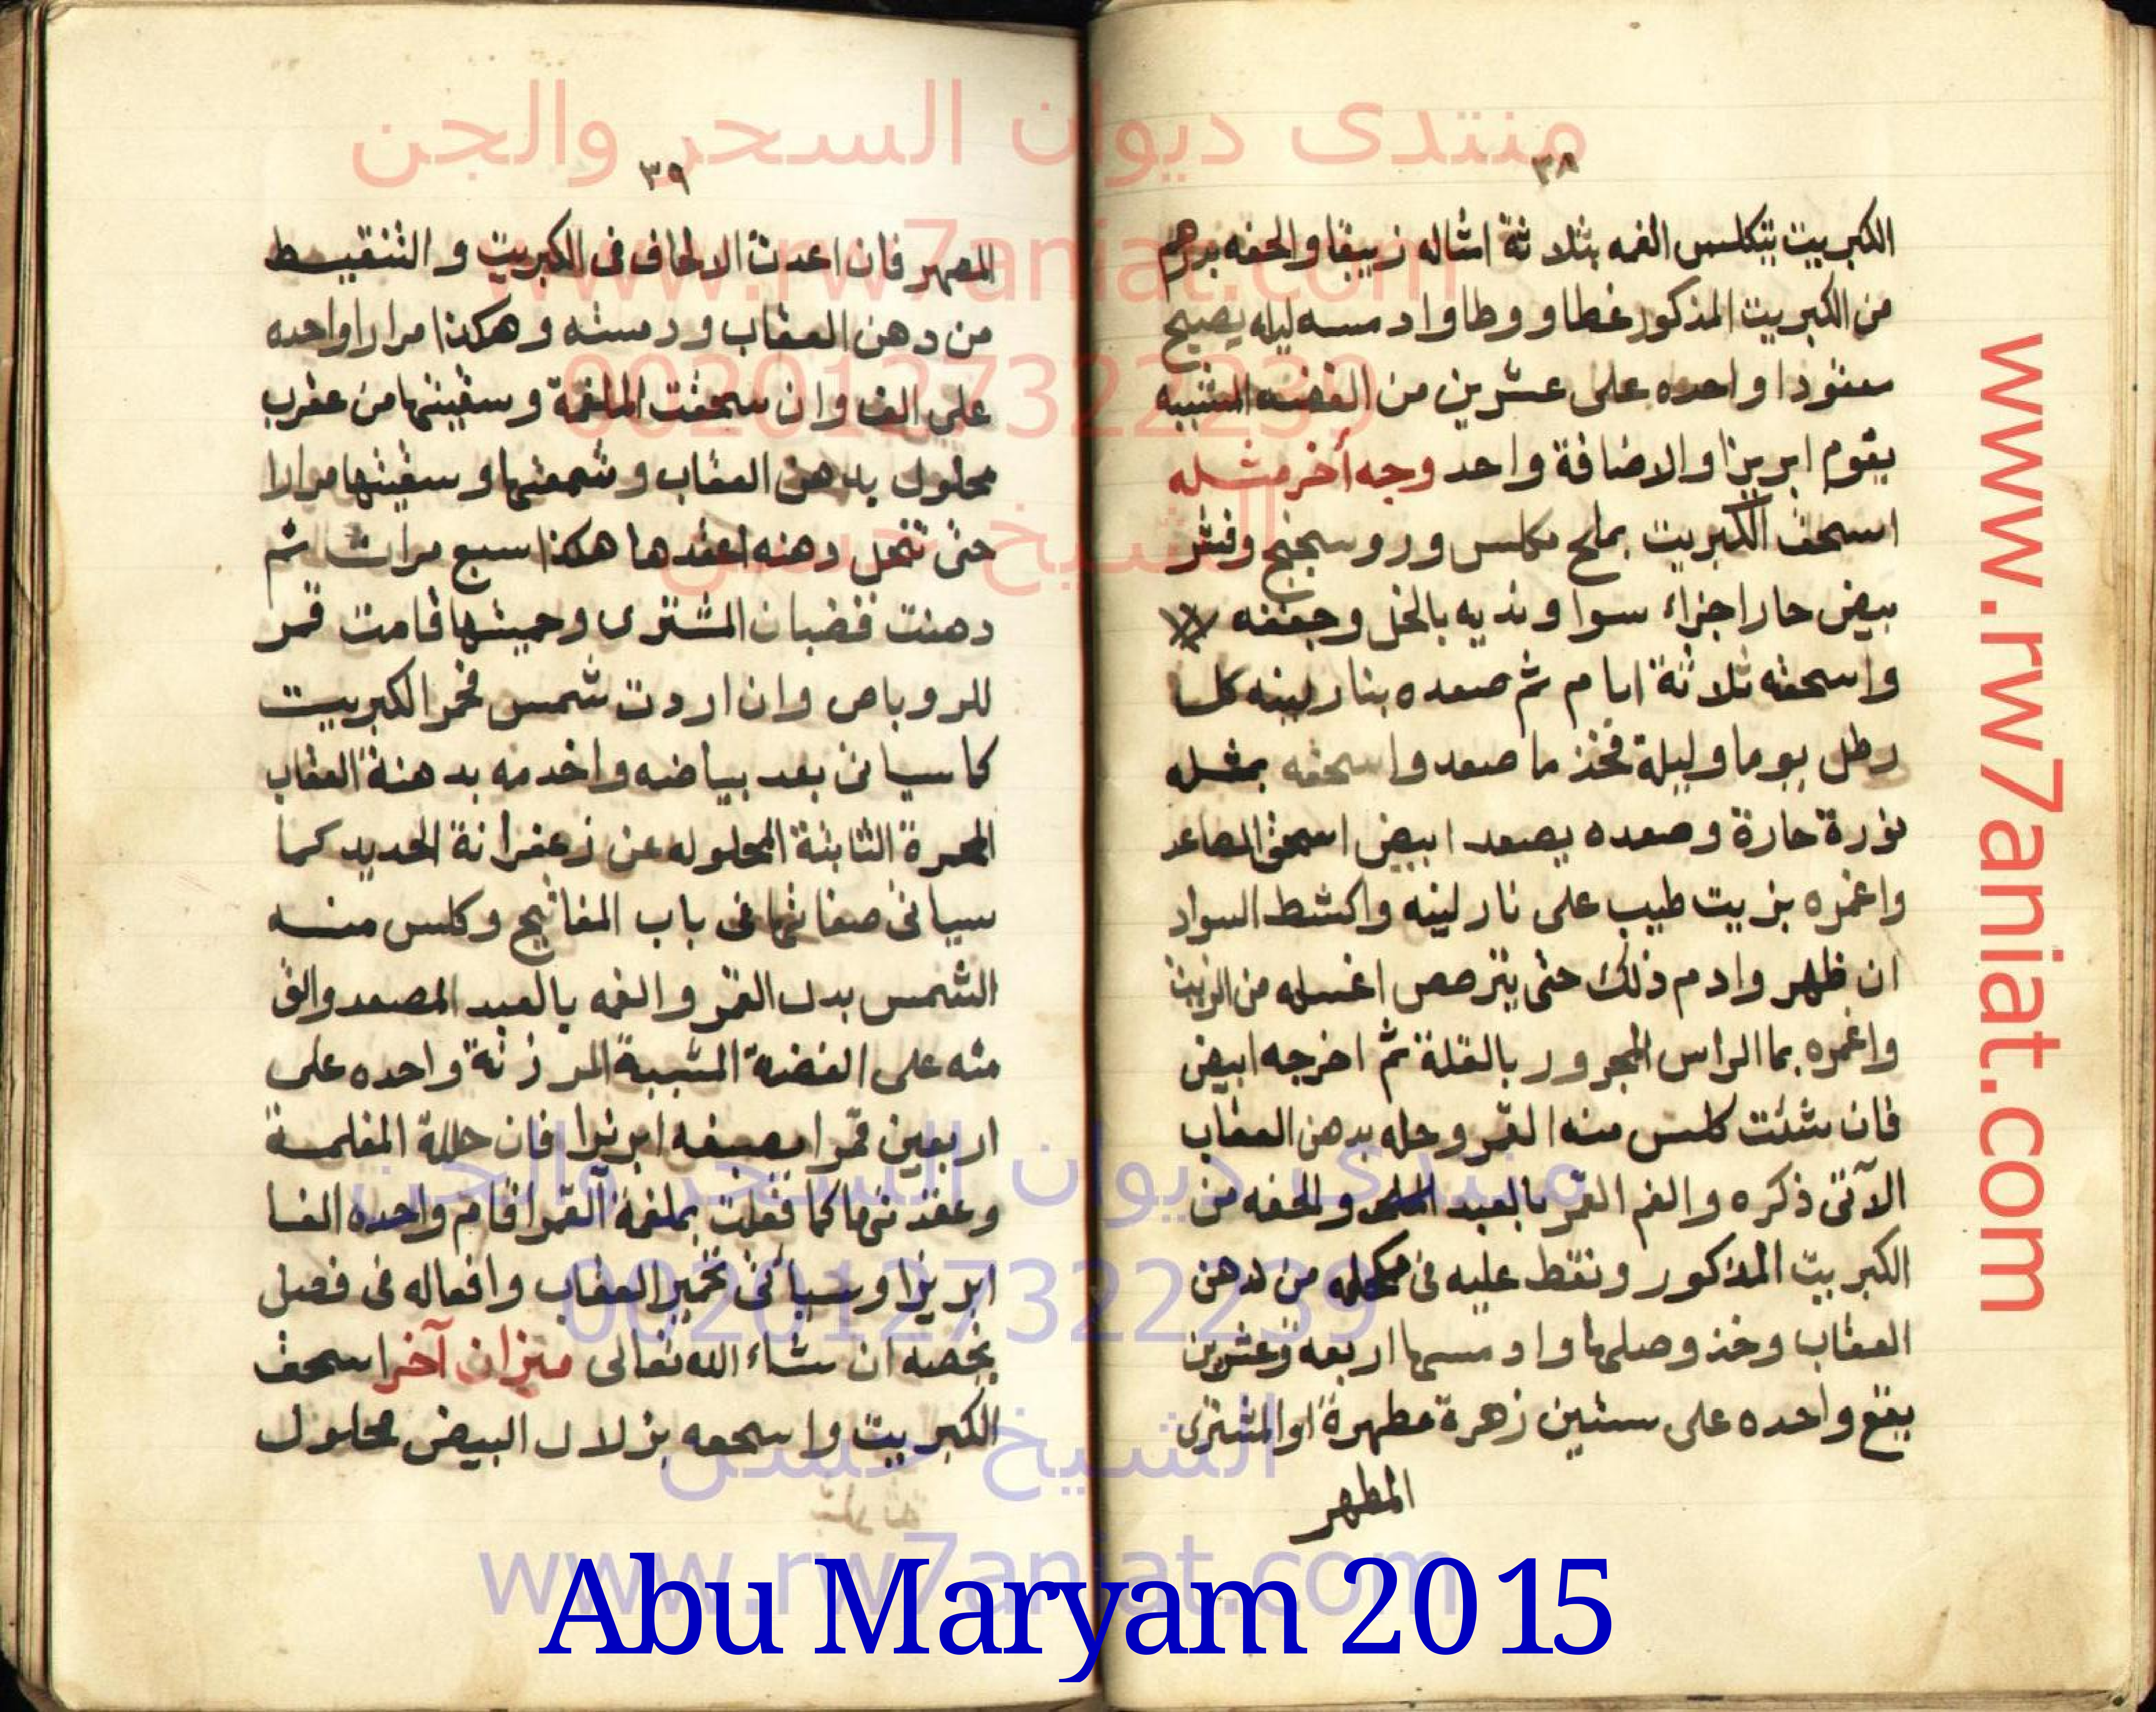 ٣٨
الكبريت يتكلس الغمه بثلاثة امثاله زيبقا والحفه بدرهم
من الكبريت المذكور غطا ووطا وادمسه ليله يصبح
معقودا واحده على عشرين من الفضه المشببه
يقوم ابريزا والاضافة واحد وجه أخر مثله
اسحق الكبريت بملح مكلس وروسختج وقشر
بيض حار اجزاء سوا ونديه بالخل وجففه
واسحقه ثلاثة ايام ثم صعده بنار لينه كل
رطل يوما وليلة فخذ ما صعد واسحقه بمثله
نورة حارة وصعده يصعد ابيض اسحق الصاعد
واغمره بزيت طيب على نار لينه واكشط السواد
ان ظهر وادم ذلك حتى يترصص اغسله من الزيت
واغمره بماء الراس المجرور بالقلة ثم اخرجه ابيض
فان شئت كلس منه القمر وحله بدهن العقاب
الآتى ذكره والغم القمر بالعبد والحفه من
الكبريت المذكور ونقط عليه فى مكحله من دهن
العقاب وخذ وصلها وادمسها اربعه وعشرين
يقع واحده على ستين زهرة مطهرة او المشترى
المطهر
٣٩
المصهر فان اعدت الالحاف فى الكبريت والتنقيط
من دهن العقاب ودمسته وهكذا مرارا واحده
على الف وان سحقت الملغمة وسقيتها من عقرب
محلول بدهن العقاب وشمعتها وسقيتها مرارا
حتى تنحل دهنه اعقدها هكذا سبع مرات ثم
دهنت قضبان المشترى وحميتها قامت قمر
للروباص وان اردت شمس فحمر الكبريت
كما سياتى بعد بياضه واخدمه بدهنة العقاب
المحمرة الثابتة المحلوله عن زعفرانة الحديد كما
سياتى صفاتها فى باب المفاتيح وكلس منه
الشمس بدل القمر والغمه بالعبد المصعد والق
منه على الفضة المشببة المرزنة واحده على
اربعين قمرا يصبغه ابريزا فان حللة المغلمسة
وعقدتها كما فعلت بملغمة القمر اقام واحده الفا
ابريزا وسياتى تخمير العقاب وافعاله فى فصل
يخصه ان شاء الله تعالى ميزان آخر اسحق
الكبريت واسحقه بزلال البيض محلول
منتدى ديوان السحر والجن
www.rw7aniat.com
00201273 22239
الشيخ حسن
منتدى ديوان السحر والجن
00201273 22239
الشيخ حسن
www.rw7aniat.com
www.rw7aniat.com
Abu Maryam 2015